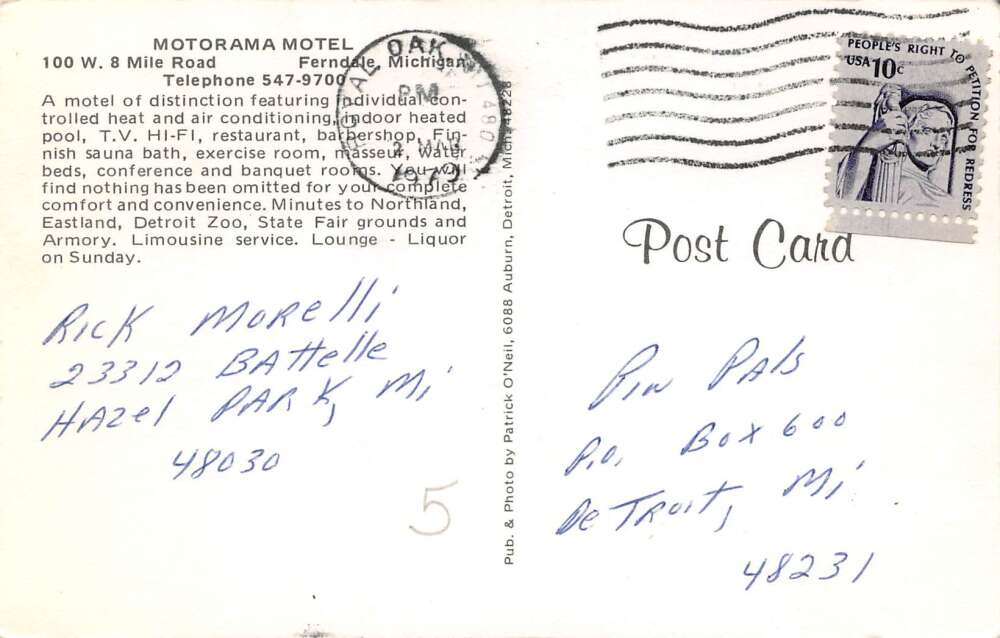 MOTORAMA MOTEL
100 W. 8 Mile Road Ferndale, Michigan
Telephone 547-9700
A motel of distinction featuring individual con-
trolled heat and air conditioning, indoor heated
pool, T.V. HI-FI, restaurant, barbershop, Fin-
nish sauna bath, exercise room, masseur, water
beds, conference and banquet rooms. You will
find nothing has been omitted for your complete
comfort and convenience. Minutes to Northland,
Eastland, Detroit Zoo, State Fair grounds and
Armory. Limousine service. Lounge - Liquor
on Sunday.
ROYAL OAK, MI 480
PM
2 MAR
1979
Rick Morelli
23312 Battelle
Hazel Park, Mi
48030
5
Pub. & Photo by Patrick O'Neil, 6088 Auburn, Detroit, Mich. 48228
PEOPLE'S RIGHT TO PETITION FOR REDRESS
USA 10c
Post Card
Pin Pals
P.O. Box 600
Detroit, Mi
48231